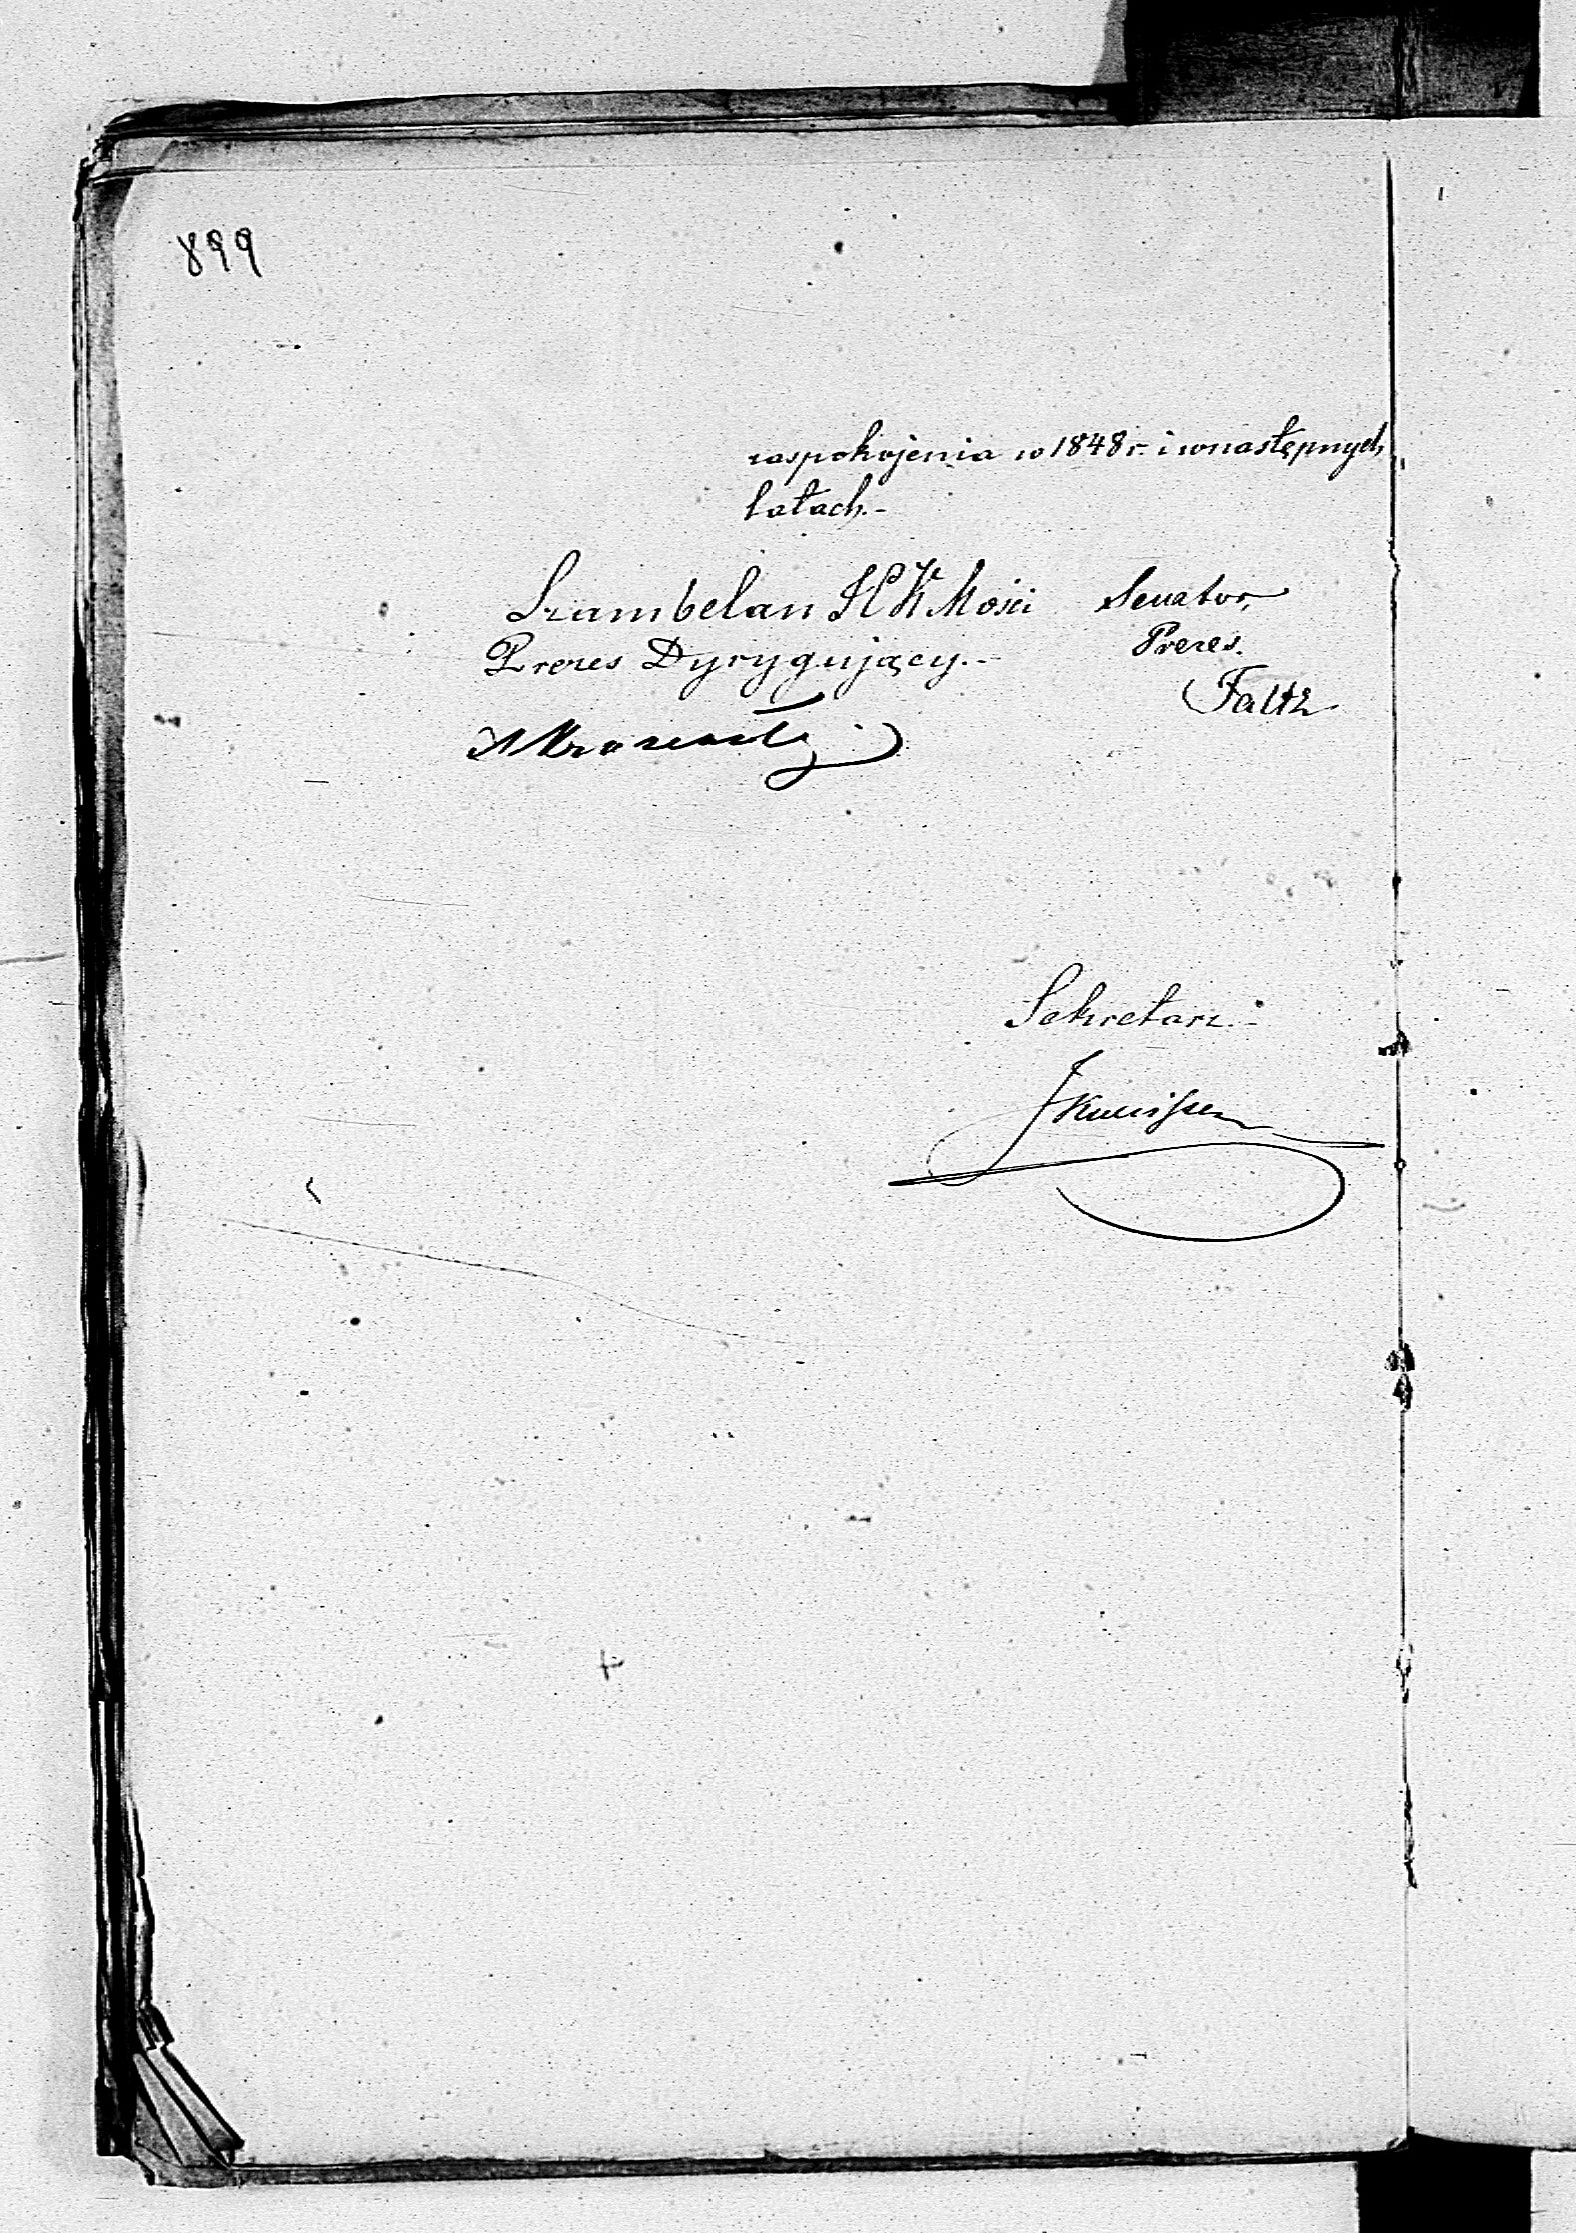 899
zaspokojenia w 1848 r. i w następnych
latach.-
Szambelan JCK Mości
Prezes Dyrygujący.-
Senator,
Prezes.
Faltz
Sekretarz.-